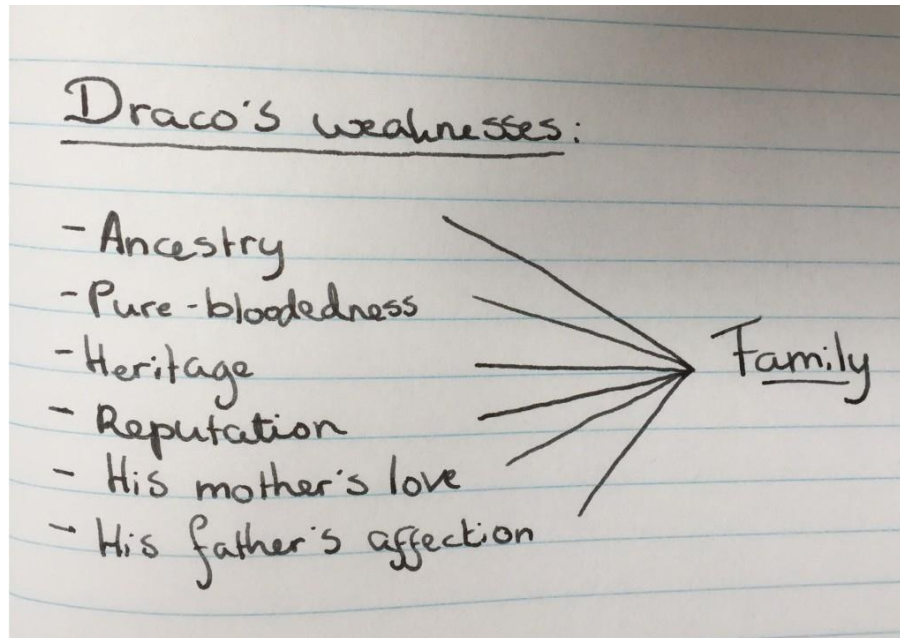 Draco's weaknesses:
- Ancestry
- Pure-bloodedness
- Heritage
- Reputation
- His mother's love
- His father's affection
Family